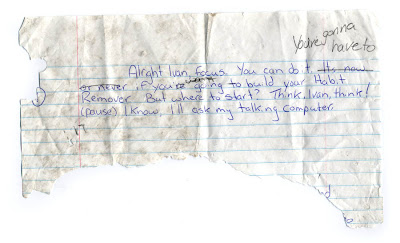 You're gonna
have to
Alright Ivan, focus. You can do it. It's now
or never if you're going to build your Habit
Remover. But where to start? Think, Ivan, think!
(pause) I know, I'll ask my talking computer.